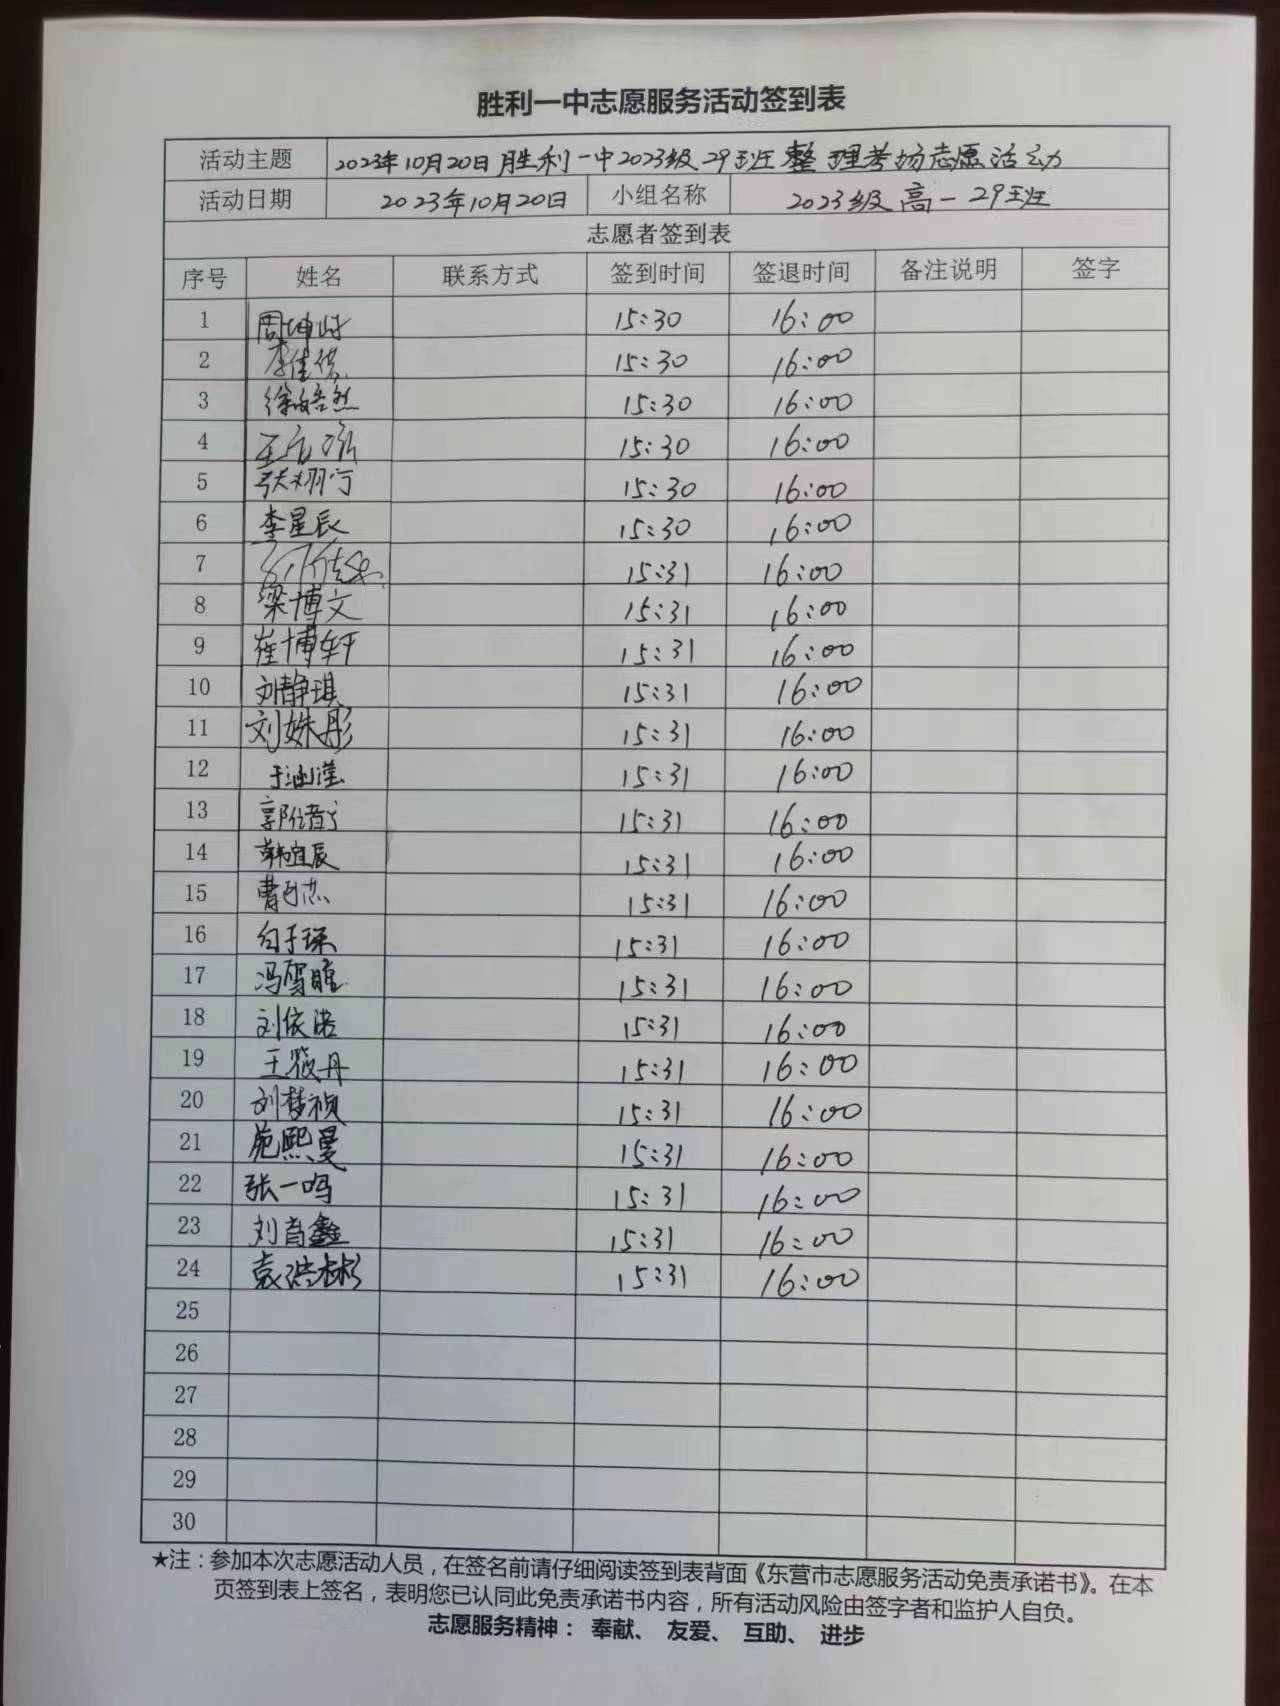 胜利一中志愿服务活动签到表
活动主题 2023年10月20日胜利一中2023级29班整理考场志愿活动
活动日期 2023年10月20日 小组名称 2023级高一29班
志愿者签到表
序号 姓名 联系方式 签到时间 签退时间 备注说明 签字
1 15:30 16:00
2 15:30 16:00
3 15:30 16:00
4 15:30 16:00
5 15:30 16:00
6 李星辰 15:30 16:00
7 15:31 16:00
8 梁博文 15:31 16:00
9 崔博轩 15:31 16:00
10 刘静琪 15:31 16:00
11 刘姝彤 15:31 16:00
12 于涵滢 15:31 16:00
13 15:31 16:00
14 韩宜辰 15:31 16:00
15 15:31 16:00
16 15:31 16:00
17 15:31 16:00
18 刘依诺 15:31 16:00
19 王筱丹 15:31 16:00
20 刘梦祯 15:31 16:00
21 施熙曼 15:31 16:00
22 张一鸣 15:31 16:00
23 15:31 16:00
24 袁浩彬 15:31 16:00
25
26
27
28
29
30
★注：参加本次志愿活动人员，在签名前请仔细阅读签到表背面《东营市志愿服务活动免责承诺书》。在本
页签到表上签名，表明您已认同此免责承诺书内容，所有活动风险由签字者和监护人自负。
志愿服务精神： 奉献、 友爱、 互助、 进步